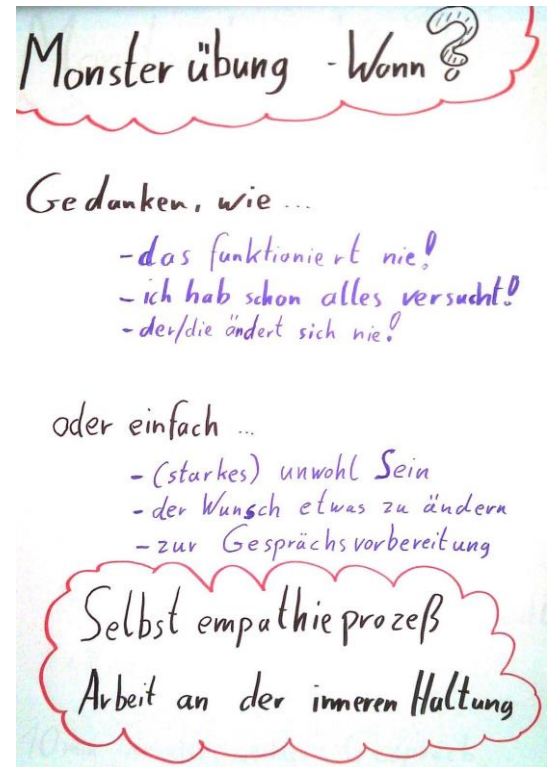 Monster übung - Wann?
Gedanken, wie ...
- das funktioniert nie!
- ich hab schon alles versucht!
- der/die ändert sich nie!
oder einfach ...
- (starkes) unwohl Sein
- der Wunsch etwas zu ändern
- zur Gesprächsvorbereitung
Selbst empathieprozeß
Arbeit an der inneren Haltung